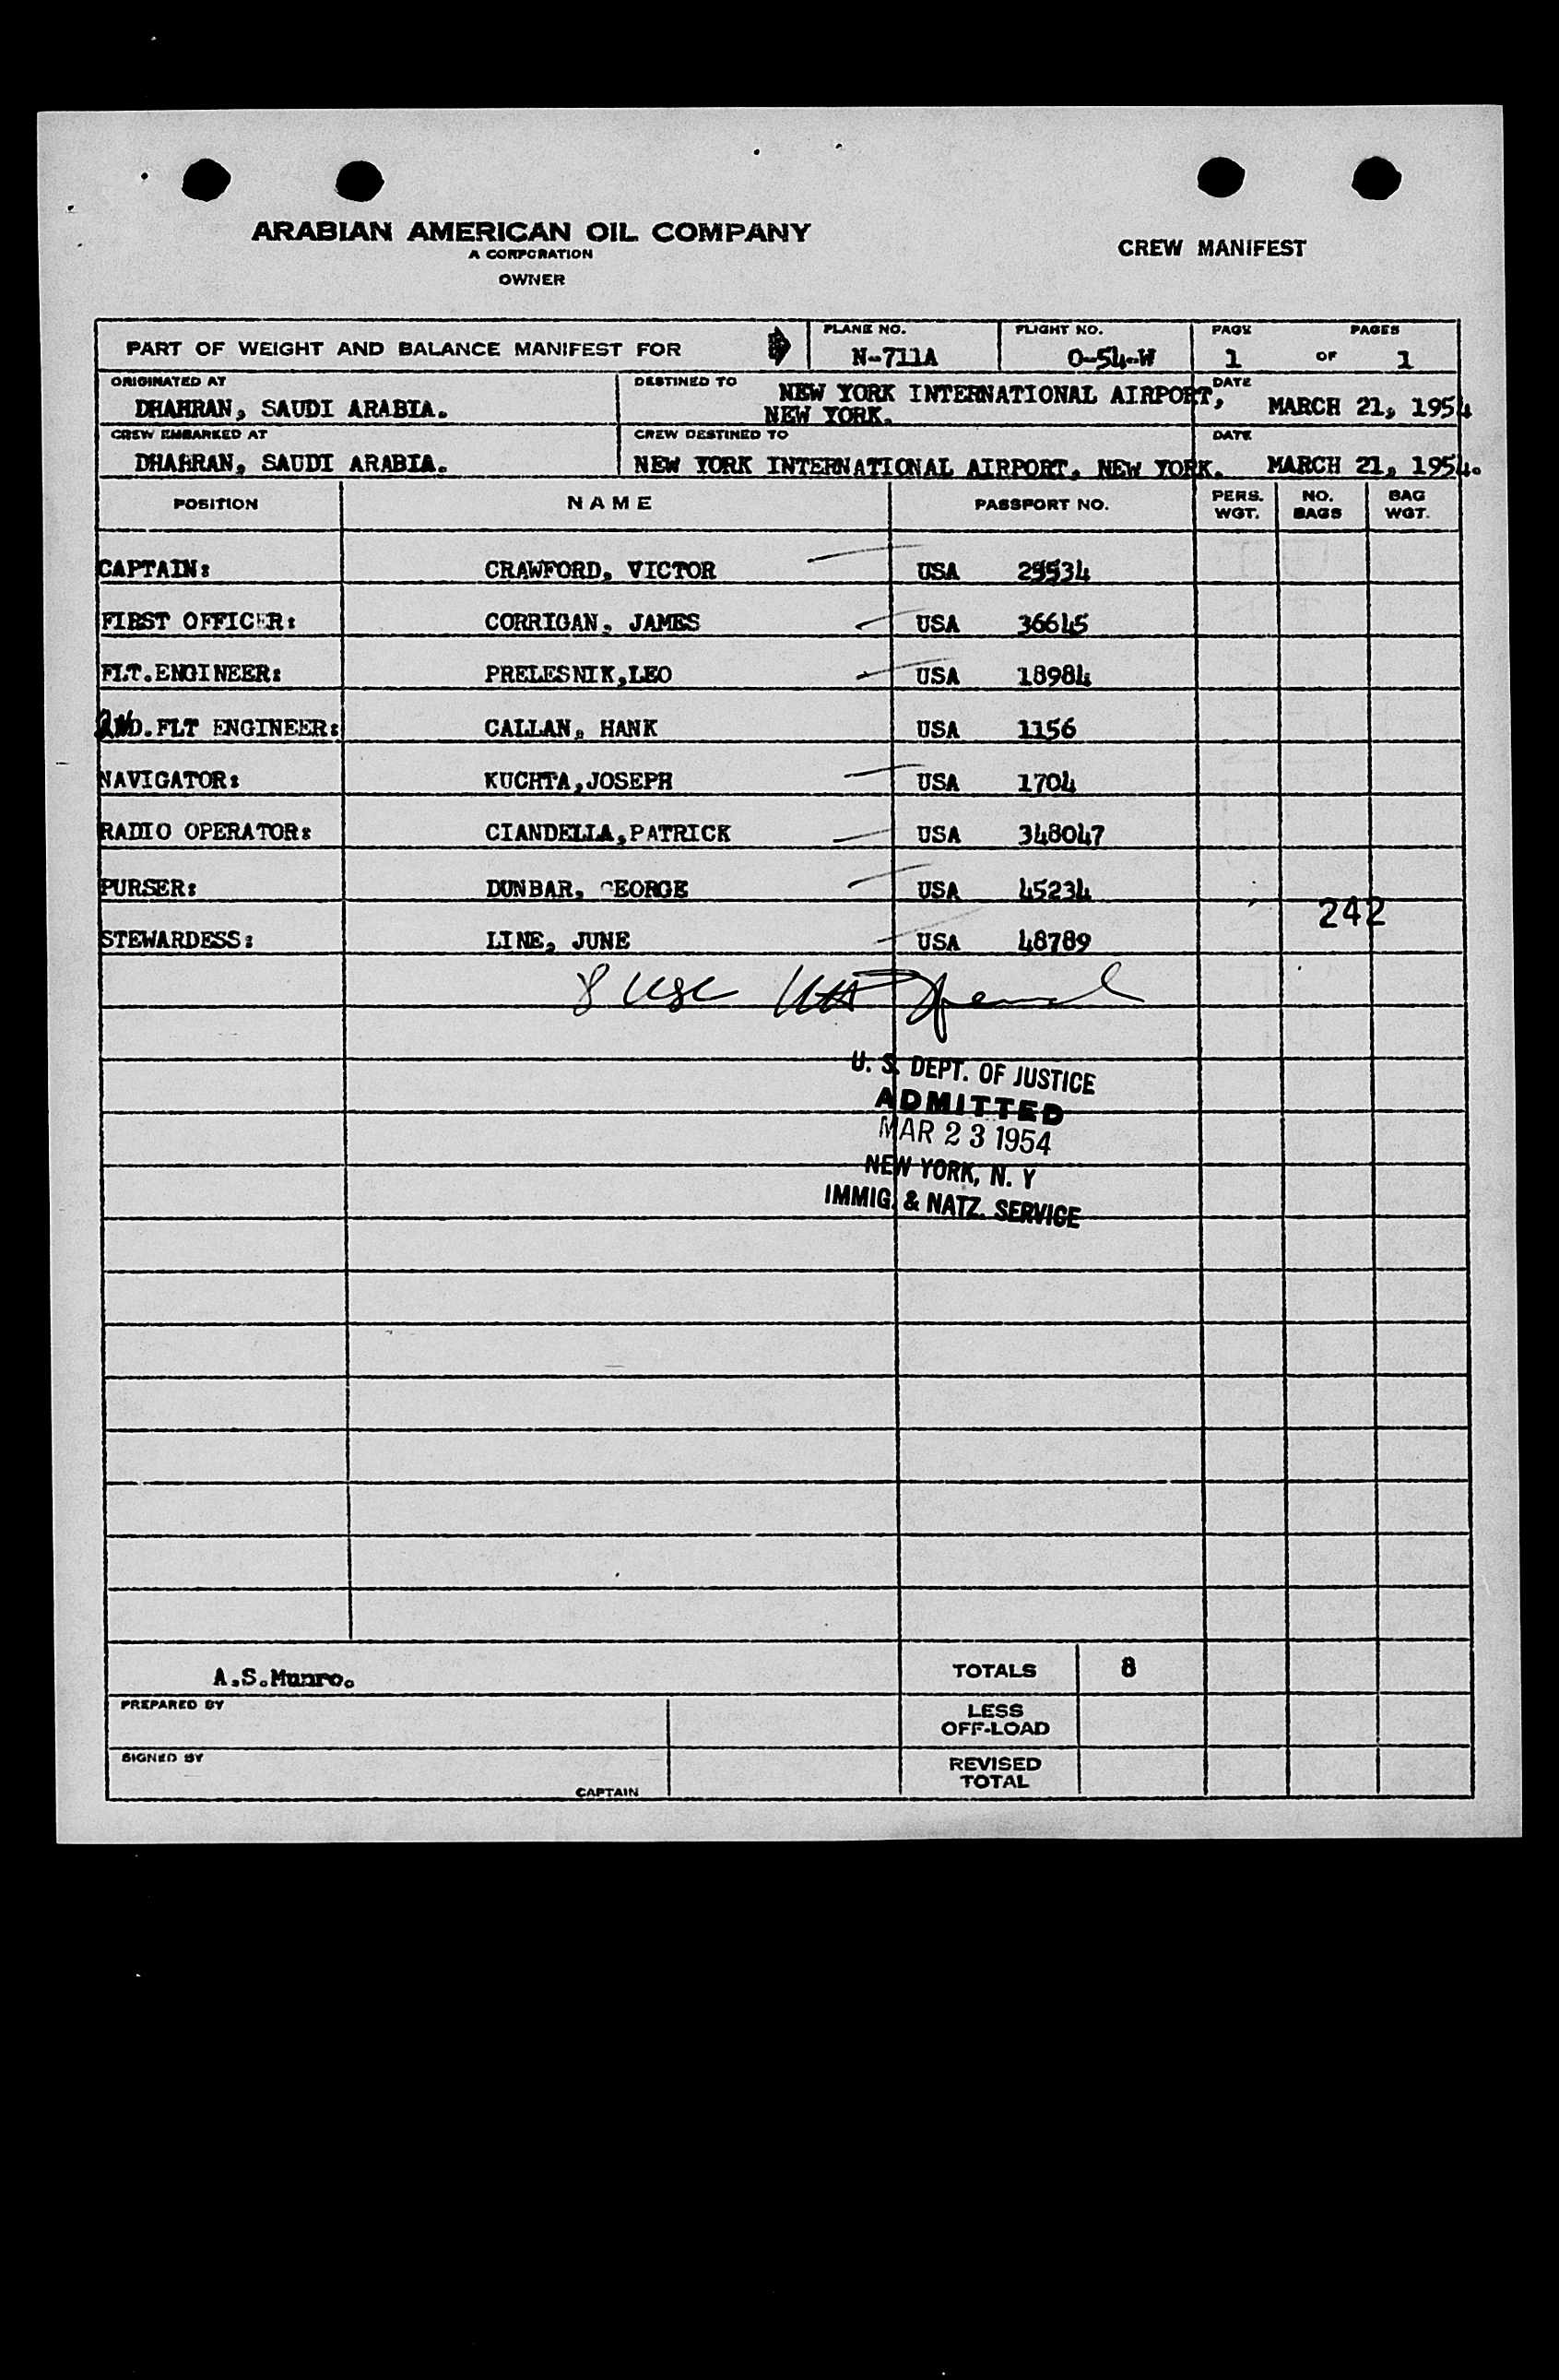 ARABIAN AMERICAN OIL COMPANY
A CORPORATION
OWNER
CREW MANIFEST
PART OF WEIGHT AND BALANCE MANIFEST FOR
PLANE NO.
N-711A
FLIGHT NO.
O-54-W
PAGE PAGES
1 OF 1
ORIGINATED AT
DHAHRAN, SAUDI ARABIA.
DESTINED TO
NEW YORK INTERNATIONAL AIRPORT,
NEW YORK.
DATE
MARCH 21, 1954
CREW EMBARKED AT
DHAHRAN, SAUDI ARABIA.
CREW DESTINED TO
NEW YORK INTERNATIONAL AIRPORT, NEW YORK.
DATE
MARCH 21, 1954.
POSITION NAME PASSPORT NO. PERS. WGT. NO. BAGS BAG WGT.
CAPTAIN: CRAWFORD, VICTOR USA
FIRST OFFICER: CORRIGAN, JAMES USA 36645
FLT.ENGINEER: PRELESNIK,LEO USA 18984
2ND.FLT ENGINEER: CALLAN, HANK USA 1156
NAVIGATOR: KUCHTA,JOSEPH USA 1704
RADIO OPERATOR: CIANDELLA,PATRICK USA 348047
PURSER: DUNBAR, GEORGE USA 45234
242
STEWARDESS: LINE, JUNE USA 48789
8 USC
U. S. DEPT. OF JUSTICE
ADMITTED
MAR 23 1954
NEW YORK, N. Y
IMMIG. & NATZ. SERVICE
A.S.Munro.
TOTALS 8
PREPARED BY
LESS
OFF-LOAD
SIGNED BY
CAPTAIN
REVISED
TOTAL